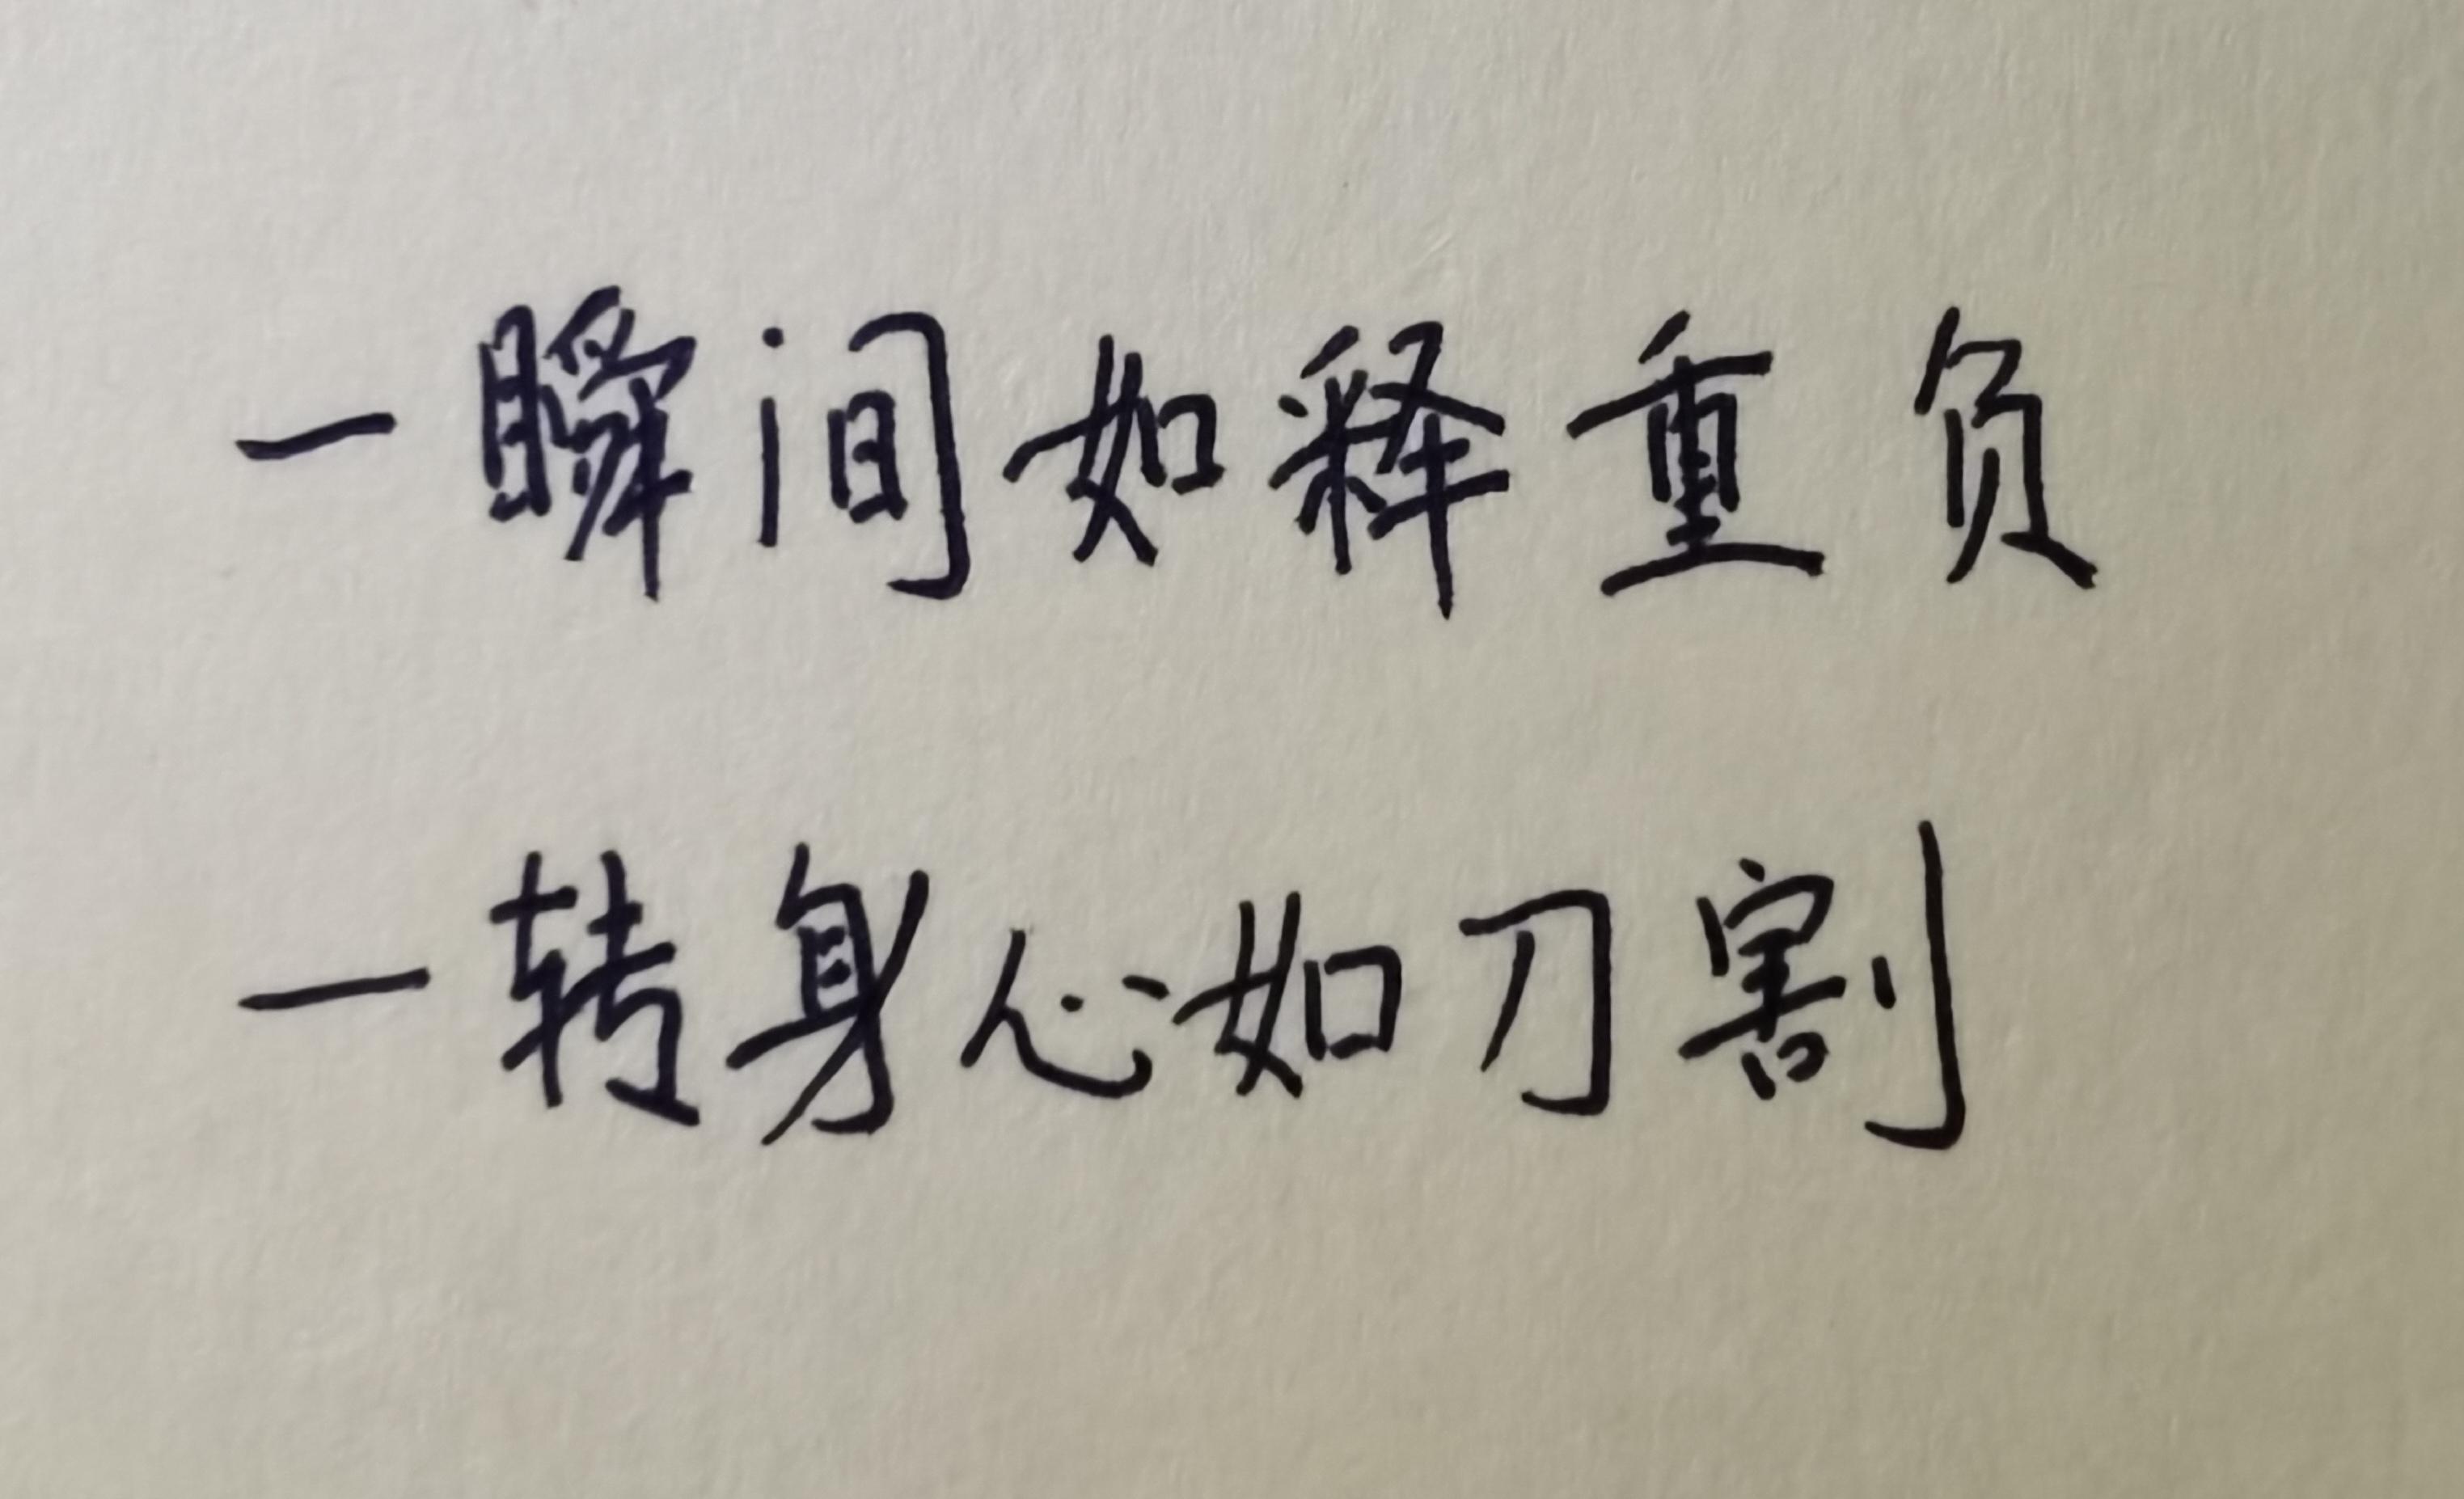 一瞬间如释重负
一转身心如刀割